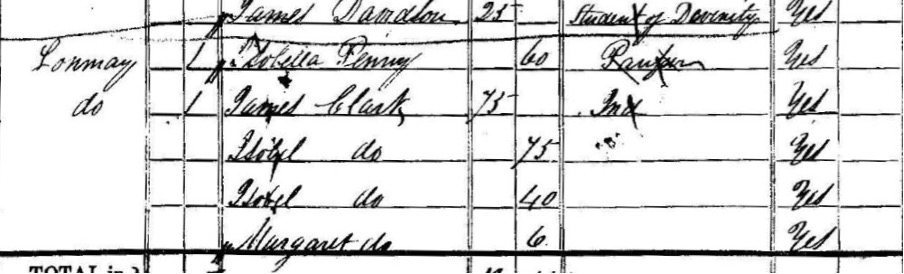 James Davidson 25 Student of Devenity Yes
Lonmay 1 Isobella Penny 60 Pauper Yes
do 1 James Clark 75 Ind Yes
Isobel do 75 Yes
Isobel do 40 Yes
Margaret do 6 Yes
TOTAL in